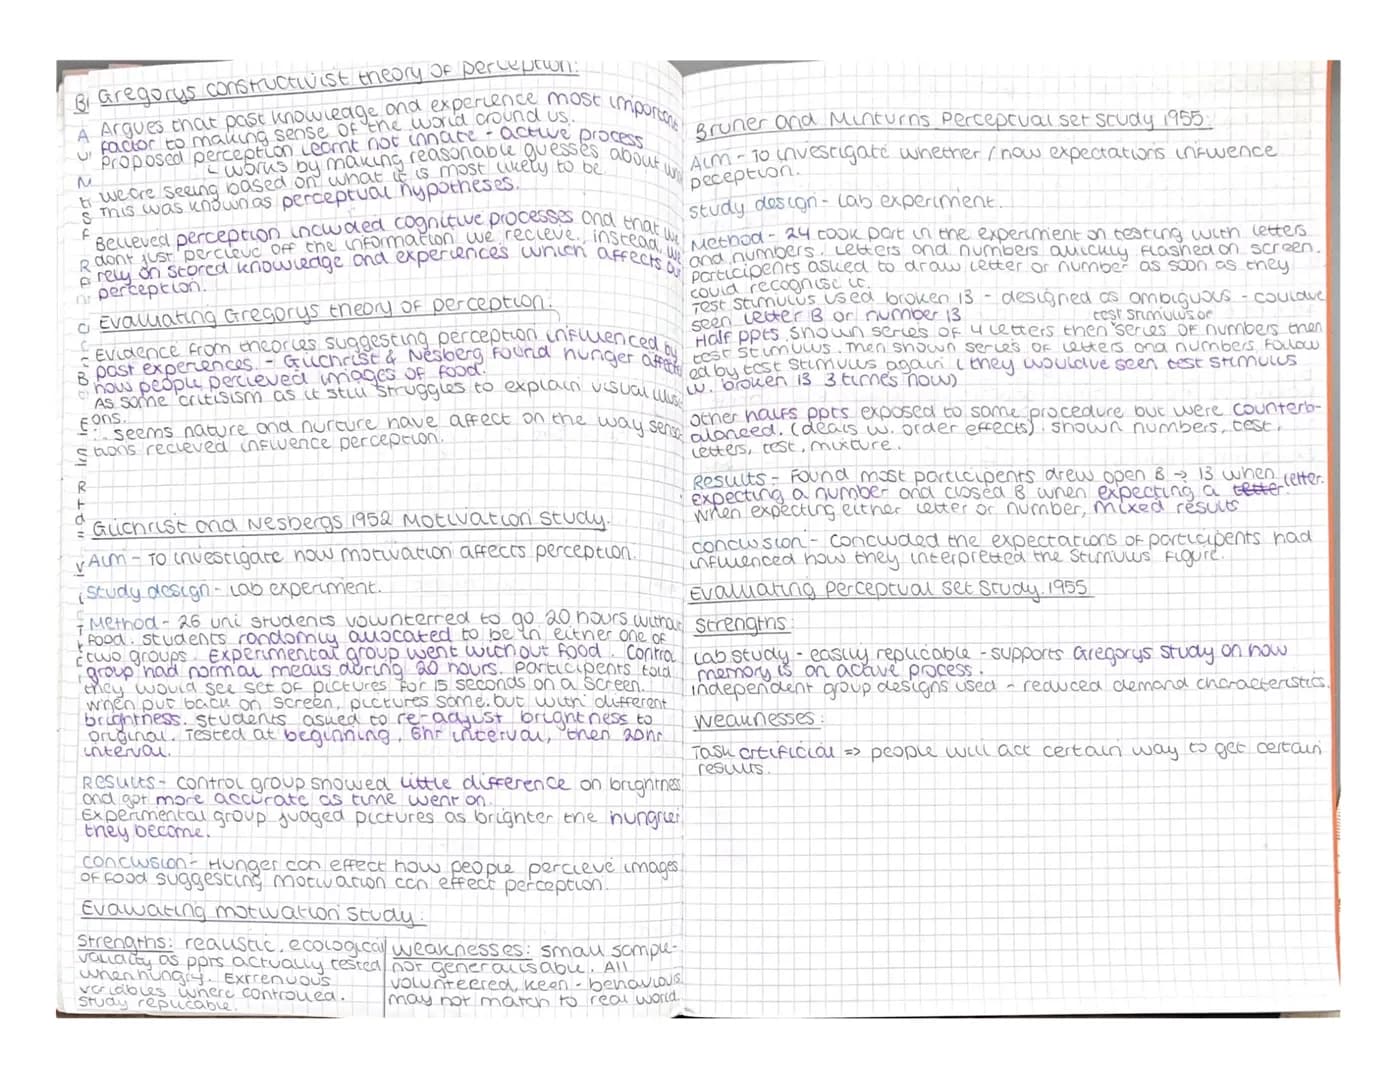 Gregorys constructivist theory of perception:
Argues that past knowledge and experience most important
factor to making sense of the world around us.
Proposed perception learnt not innate - active process
works by making reasonable guesses about
we are seeing based on what it is most likely to be.
This was known as perceptual hypotheses.
Believed perception included cognitive processes and that we
dont just percieve off the information we recieve. instead, we
rely on stored knowledge and experiences which affects our
perception.
Evaluating Gregorys theory of perception:
- Evidence from theories suggesting perception influenced by
past experiences. - Gilchrist & Nesberg found hunger affects
how people percieved images of food.
As some critisism as it still struggles to explain visual illusi
ons.
∴ seems nature and nurture have affect on the way sensa
tions recieved influence perception.
Gilchrist and Nesbergs 1952 Motivation study.
Aim - To investigate how motivation affects perception.
Study design - Lab experiment.
Method - 26 uni students volunterred to go 20 hours without
food. students randomly allocated to be in either one of
two groups. Experimental group went without food. Control
group had normal meals during 20 hours. Participents told
they would see set of pictures for 15 seconds on a screen.
when put back on screen, pictures same but with different
brightness. students asked to re-adjust brightness to
original. Tested at beginning, 6hr interval, then 20hr
interval.
Results - Control group showed little difference on brightness
and got more accurate as time went on.
Experimental group judged pictures as brighter the hungrier
they become.
conclusion - Hunger can effect how people percieve images
of food suggesting motivation can effect perception.
Evaluating motivation study:
Strengths: realistic, ecological
validity as ppts actually tested
when hungry. Extrenuous
variables where controlled.
study replicable.
weaknesses: small sample -
not generalisable. All
volunteered, keen - behaviours
may not match to real world.
Bruner and Minturns Perceptual set study 1955:
Aim - To investigate whether / how expectations influence
peception.
study design - Lab experiment.
Method - 24 took part in the experiment on testing with letters
and numbers. Letters and numbers quickly flashed on screen.
Participents asked to draw letter or number as soon as they
could recognise it.
Test stimulus used broken 13 - designed as ambiguous - couldve
seen letter B or number 13
test stimulus of
Half ppts shown series of 4 letters then series of numbers then
test stimulus. Then shown series of letters and numbers, follow
ed by test stimulus again (they wouldve seen test stimulus
w. broken 13 3 times now)
other halfs ppts exposed to same procedure but were counterb-
alanced. (deals w. order effects). shown numbers, test,
letters, test, mixture.
Results - Found most participents drew open B → 13 when
expecting a number and closed B when expecting a letter.
When expecting either letter or number, mixed results
conclusion - concluded the expectations of participents had
influenced how they interpretted the stimulus figure.
Evaluating perceptual set study. 1955
Strengths:
Lab study - easily replicable - supports Gregorys study on how
memory is an active process.
independent group designs used - reduced demand characteristics.
Weaknesses:
Task artificial => people will act certain way to get certain
results.